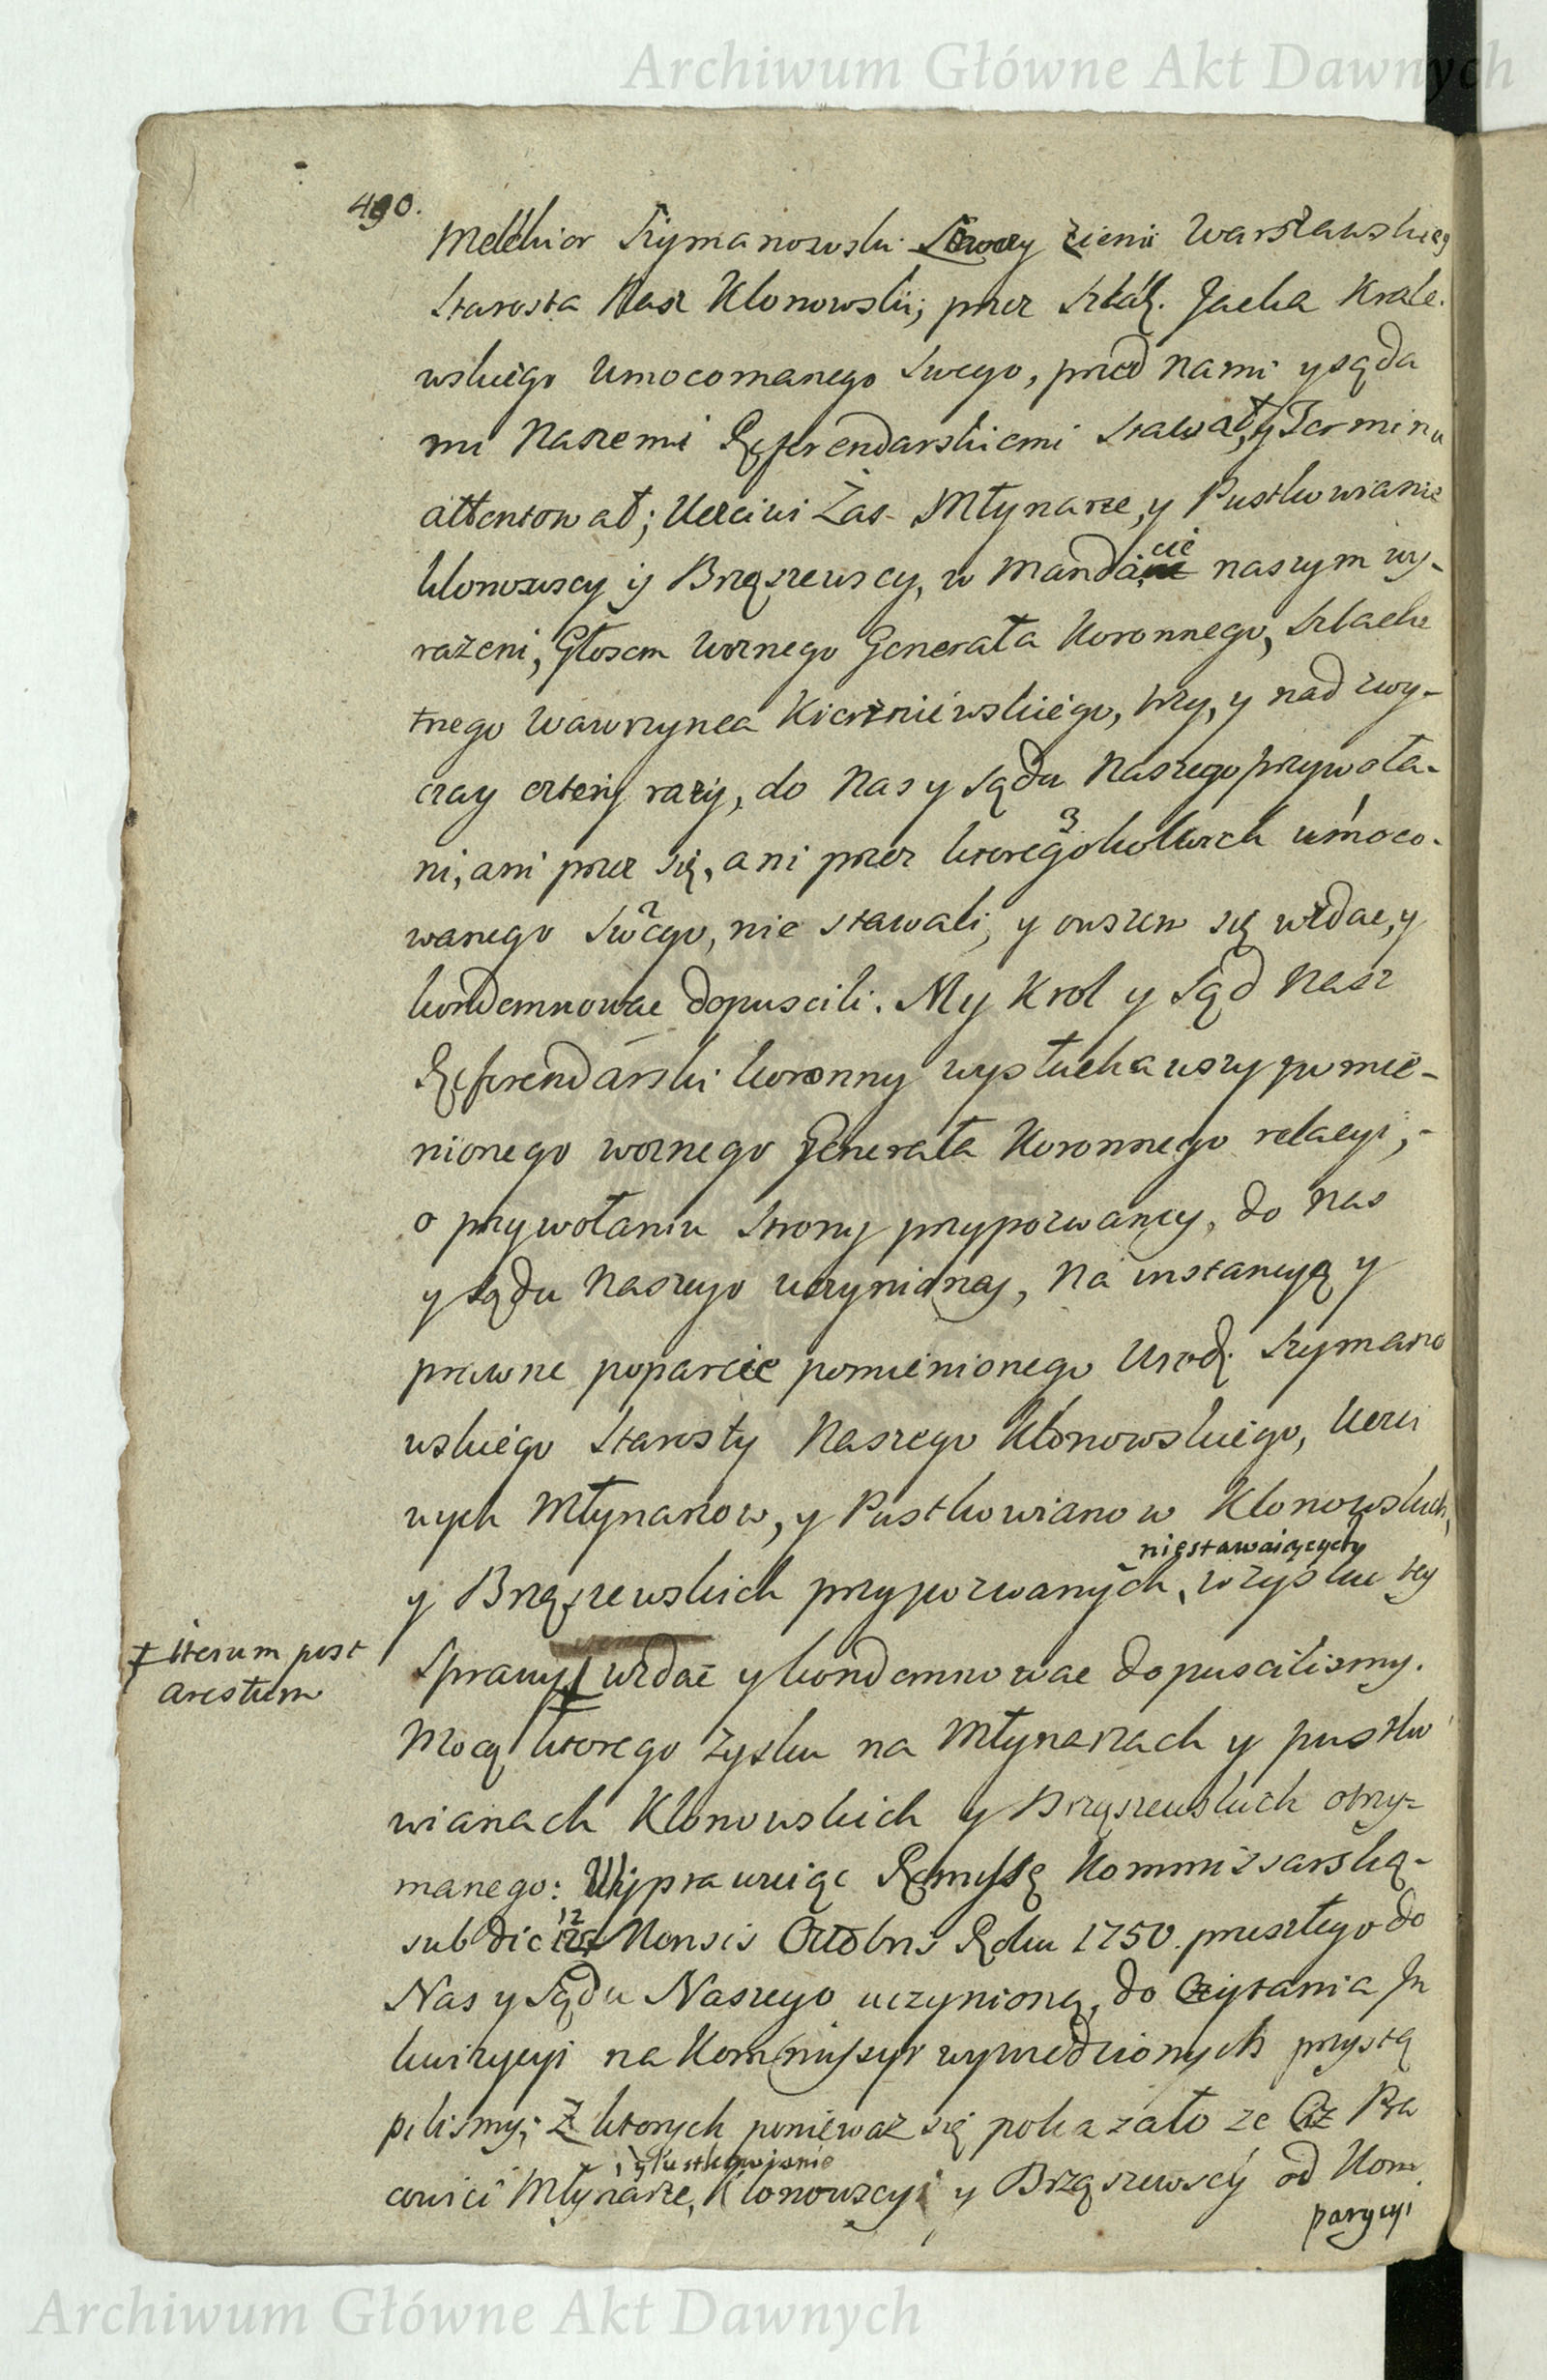 Archiwum Główne Akt Dawnych
490.
Melchior Szymanowski Łowczy Ziemi Warszawskiey
Starosta Nasz Klonowski; przez Szlach. Jacka Krale-
wskiego Umocowanego Swego, przed Nami y sąda
mi Naszemi Referendarskiemi Stawał, y Terminu
attentował; Uczciwi Zaś Młynarze, y Pustkowianie
klonowscy y Brząszewscy, w Mandacie naszym wy-
rażeni, Głosem Woznego Generała Koronnego, Szlache
tnego Wawrzynca Kierzniewskiego, trzy, y nad zwy-
czay cztery razy, do Nas y Sądu Naszego przywoła-
ni, ani przez się, ani przez ktoregożkolwiek umoco-
wanego Swego, nie stawali, y owszem się wzdac, y
kondemnowac dopuscili. My Krol y Sąd Nasz
Referendarski koronny wysłuchawszy pomie-
nionego woznego Generała Koronnego relacyi,-
o przywołaniu Strony przypozwaney, do Nas
y Sądu Naszego uczynioney, Na instancyą y
prawne poparcie pomienionego Urodz. Szymano
wskiego Starosty Naszego Klonowskiego, Uczci
wych Młynarzow, y Pustkowianow Klonowskich,
niestawaiących
y Brząszewskich przypozwanych, w zysku tey
‡ iterum post
arestum
Sprawy ‡ wzdac y kondemnowac dopuscilismy.
Mocą ktorego zysku na Młynarzach y pustko
wianach Klonowskich y Brząszewskich otrzy-
manego: Wyprawuiąc Remissę Kommissarską-
sub die 12 Mensis Octobris Roku 1750. przeszłego do
Nas y Sądu Naszego uczynioną, do Czytania In
kwizycyi na Kommissyi wywiedzionych przystą
pilismy; Z ktorych ponieważ się pokazało ze Pra
y Pustkowianie
cowici Młynarze, Klonowscy y Brząszewscy od Kom
parycyi
Archiwum Główne Akt Dawnych